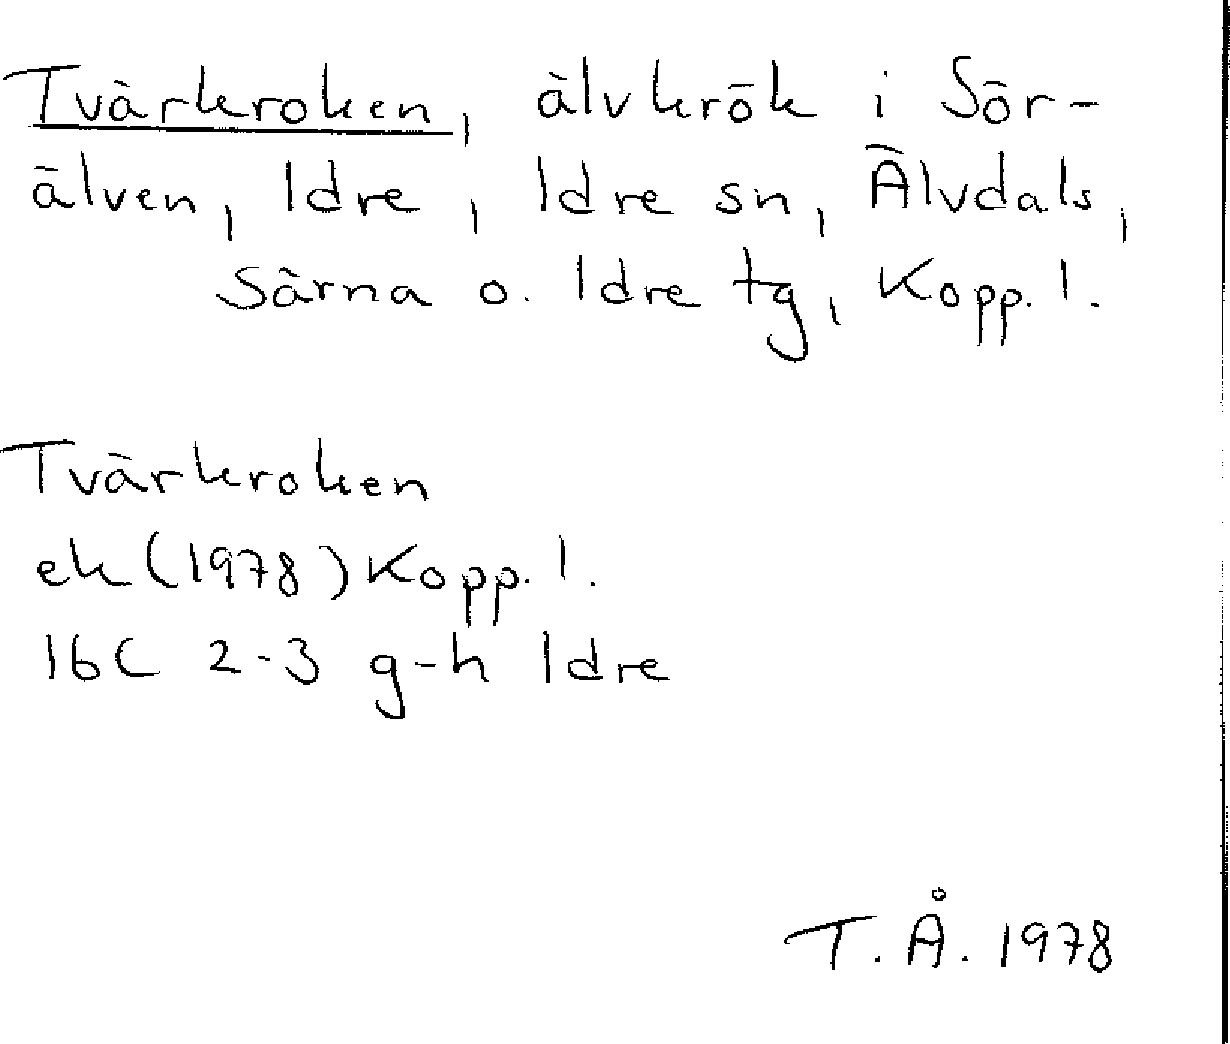 Tvärkroken, älvkrök i Sör-
älven, Idre, Idre sn, Älvdals,
Särna o. Idre tg, Kopp. l.
Tvärkroken
ek (1978) Kopp. l.
16C 2-3 g-h Idre
T. Å. 1978